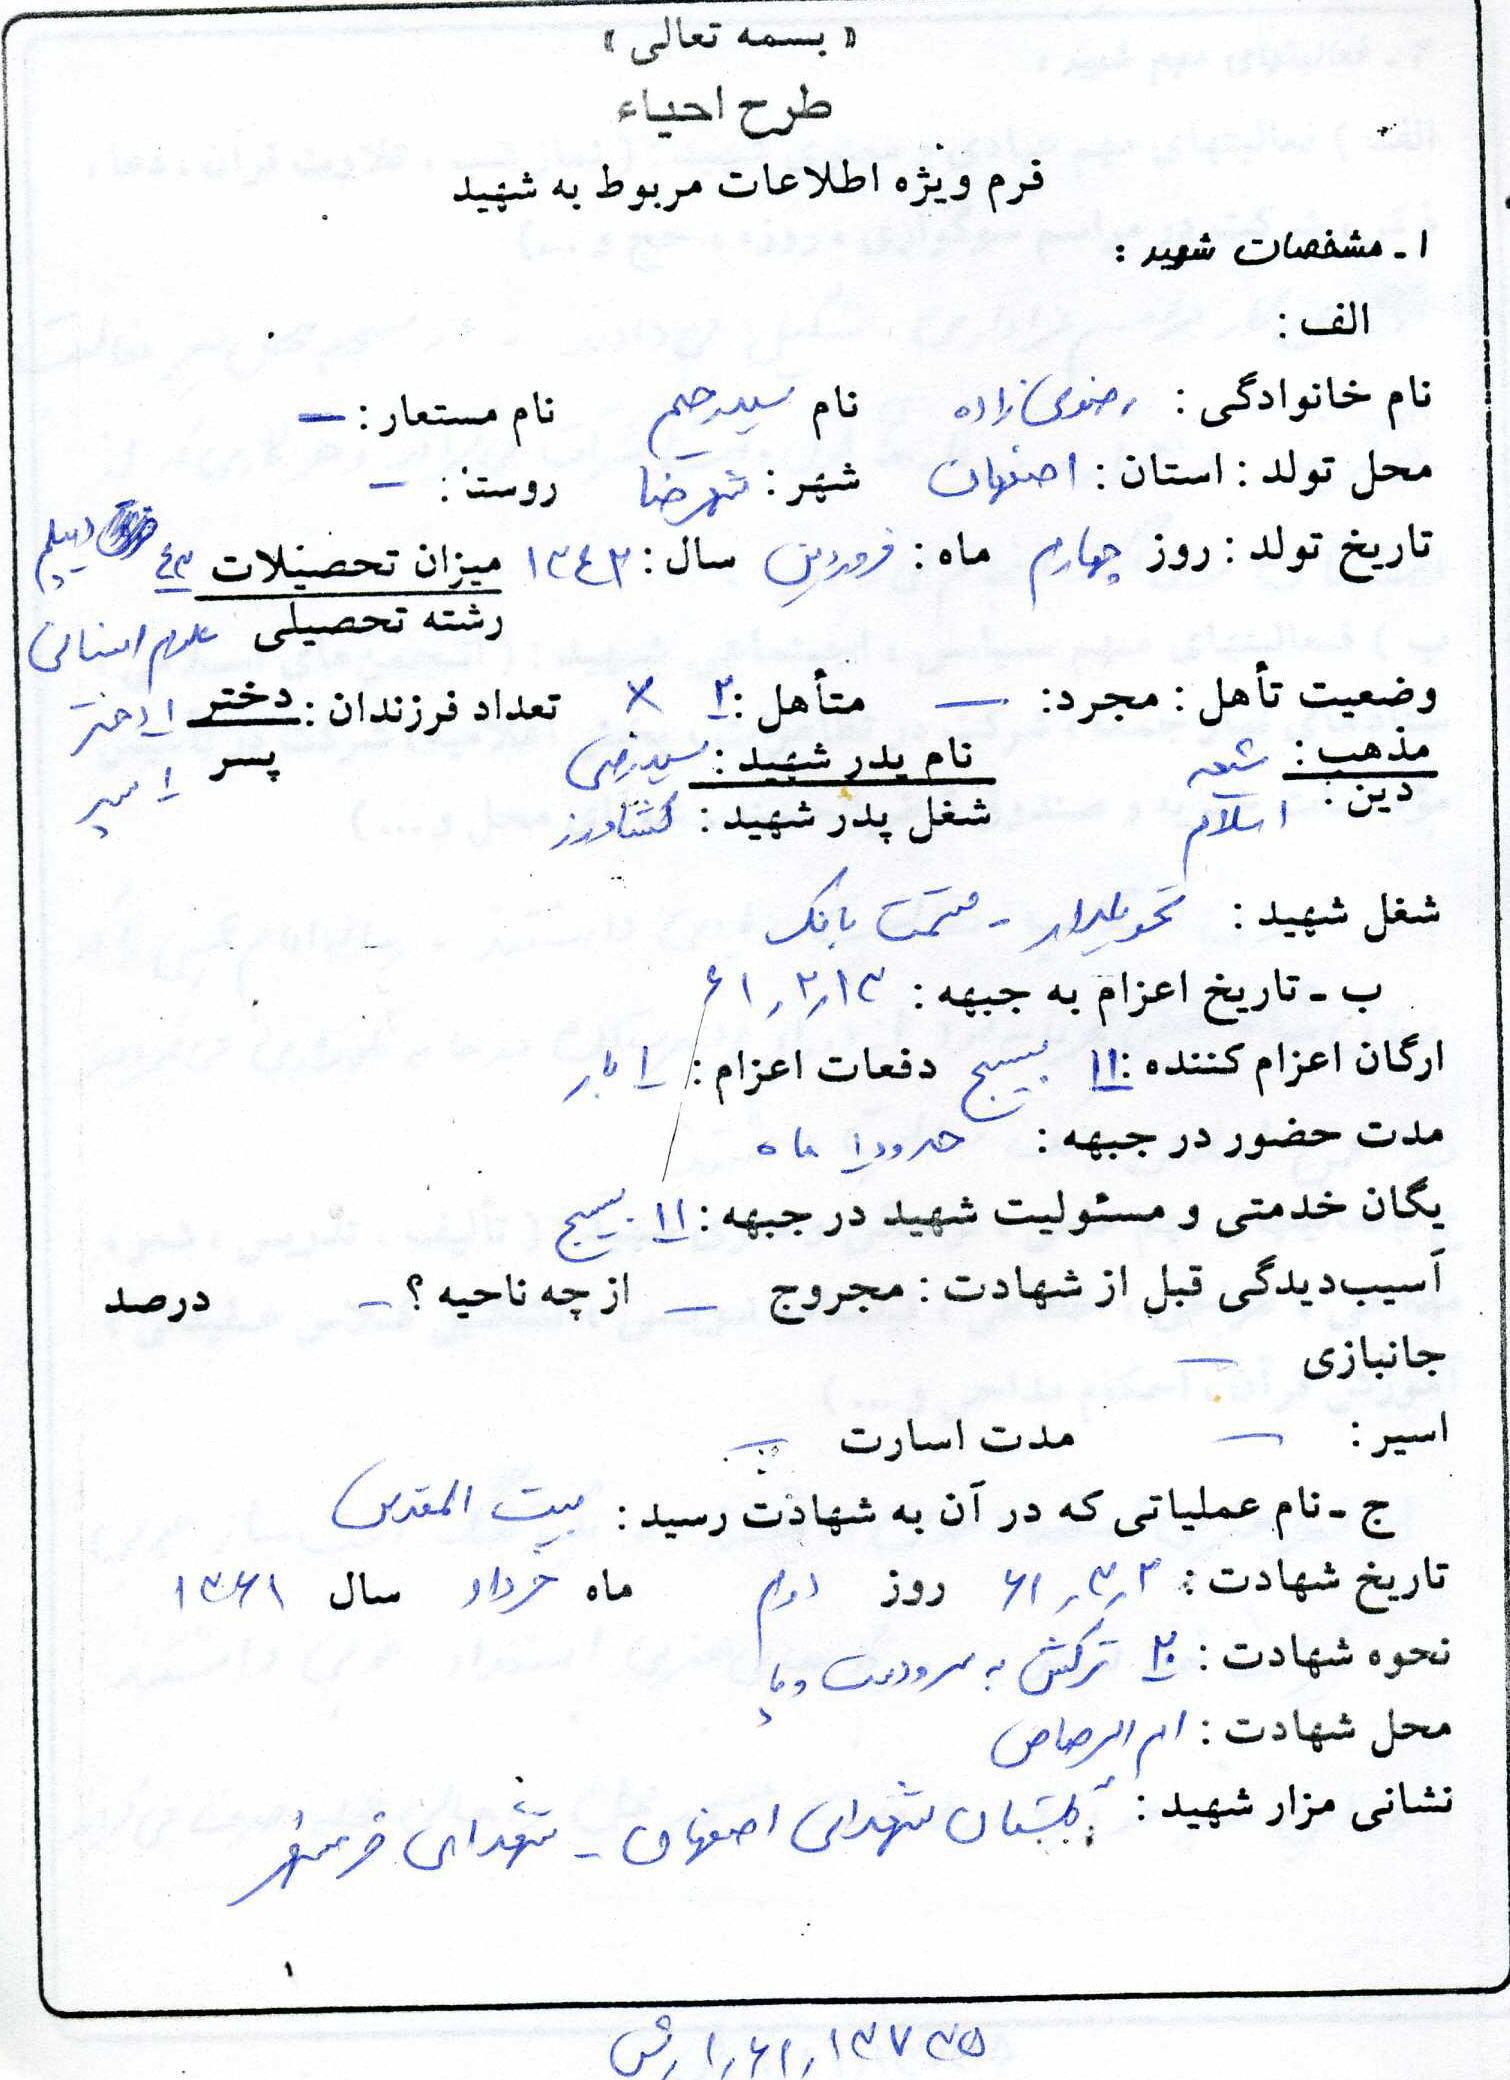 « بسمه تعالی »
طرح احیاء
فرم ویژه اطلاعات مربوط به شهید
۱ـ مشخصات شهید :
الف :
نام خانوادگی : رضوی زاده نام سیدرحیم نام مستعار : –
محل تولد : استان : اصفهان شهر : شهرضا روستا : –
تاریخ تولد : روز چهارم ماه : فروردین سال : ۱۳۴۲ میزان تحصیلات ۴۳ دیپلم
رشته تحصیلی علوم انسانی
وضعیت تأهل : مجرد : – متأهل : ۲ × تعداد فرزندان : دختر ۱ دختر
پسر ۱ پسر
مذهب : شیعه نام پدر شهید : سیدرضی
دین : اسلام شغل پدر شهید : کشاورز
شغل شهید : تحویلدار - بانک
ب ـ تاریخ اعزام به جبهه : ۶۱٫۲٫۱۳
ارگان اعزام کننده : ۱۱ بسیج دفعات اعزام : ۱ بار
مدت حضور در جبهه : حدود ۱ ماه
یگان خدمتی و مسئولیت شهید در جبهه : ۱۱ بسیج
آسیب‌دیدگی قبل از شهادت : مجروح – از چه ناحیه ؟ – درصد
جانبازی –
اسیر : – مدت اسارت –
ج ـ نام عملیاتی که در آن به شهادت رسید : بیت المقدس
تاریخ شهادت : ۶۱٫۳٫۲ روز دوم ماه خرداد سال ۱۳۶۱
نحوه شهادت : ۲۰ ترکش به سرودست وپا
محل شهادت : ام الرصاص
نشانی مزار شهید : گلستان شهدای اصفهان - شهدای خرمشهر
۱
۱۳۷۳۵٫۶۱٫۱٫ش